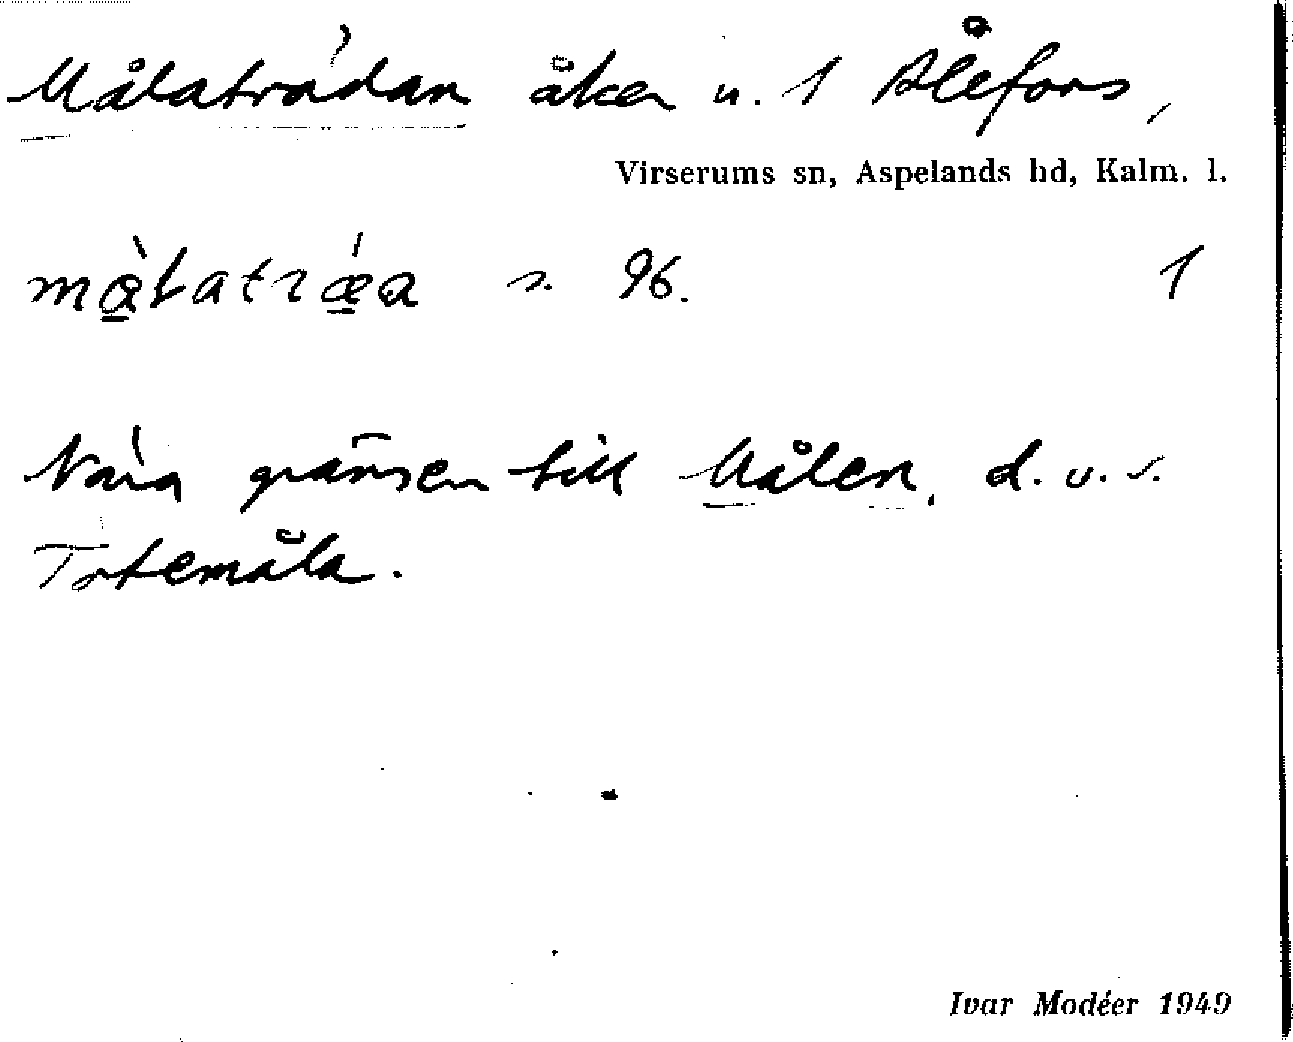 Målaträdan åker u. 1 Ålefors,
Virserums sn, Aspelands hd, Kalm. l.
s. 96. 1
Nära gränsen till Målen, d.v.s.
Totemåla.
Ivar Modéer 1949